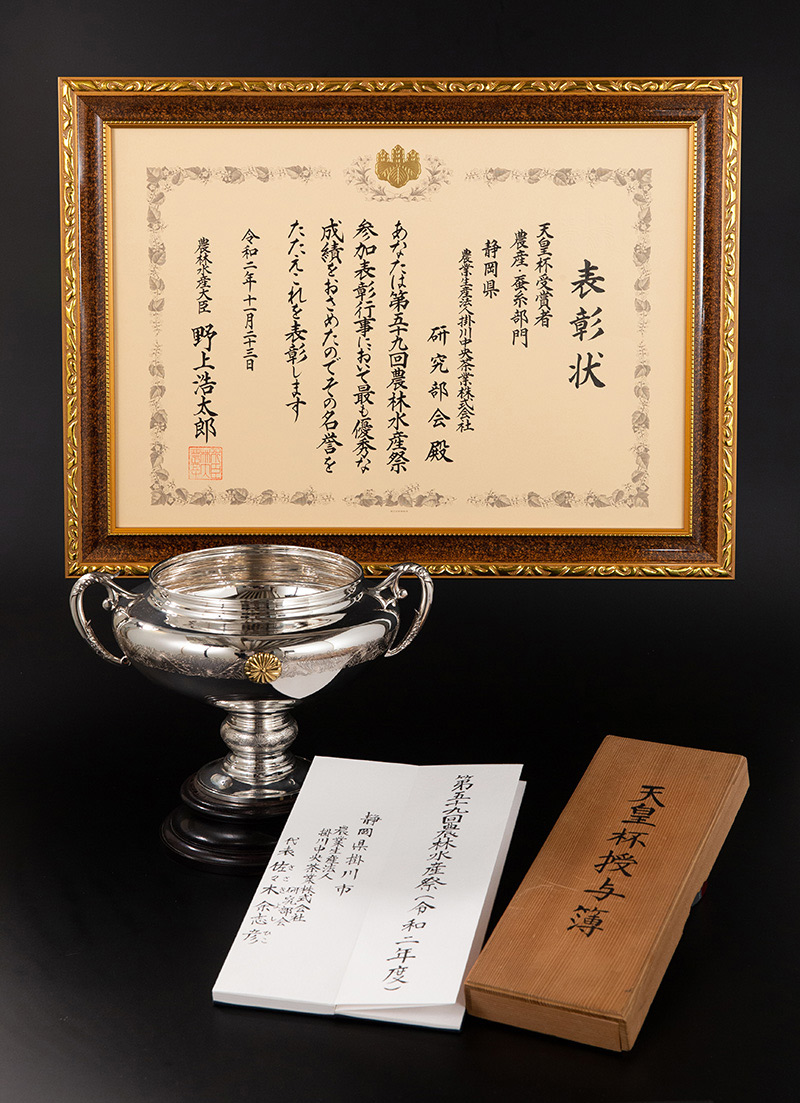 表彰状
天皇杯受賞者
農産・蚕糸部門
静岡県
農業生産法人掛川中央茶業株式会社
研究部会殿
あなたは第五十九回農林水産祭
参加表彰行事において最も優秀な
成績をおさめたのでその名誉を
たたえこれを表彰します
令和二年十一月二十三日
農林水産大臣 野上浩太郎
第五十九回農林水産祭(令和二年度)
静岡県掛川市
農業生産法人
掛川中央茶業株式会社
研究部会
代表 佐々木余志彦
天皇杯授与簿